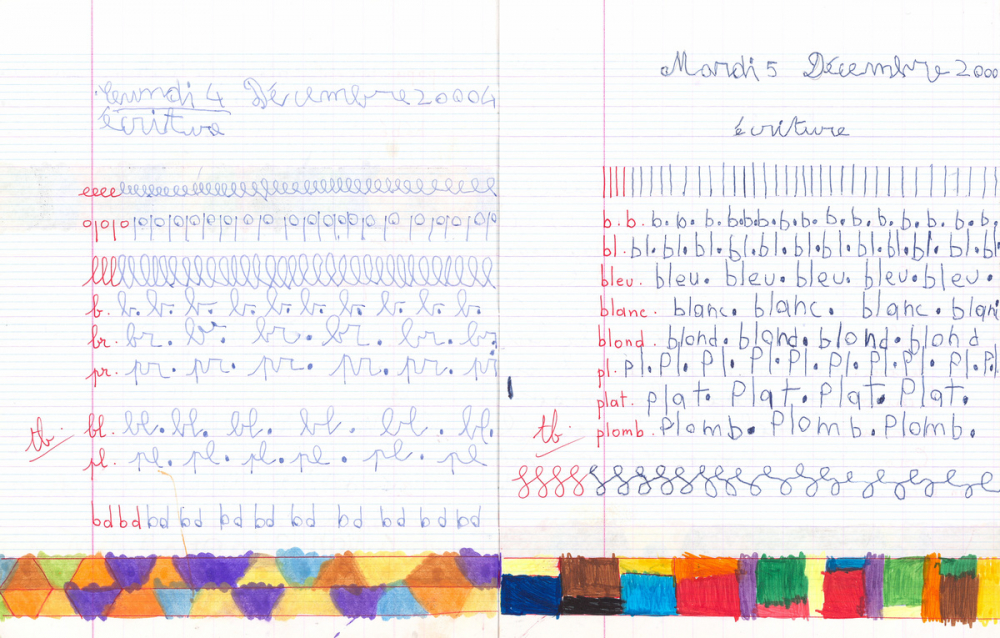 Lundi 4 Décembre 2000
écriture
eeeeeeeeeeeeeeeeeeeeeeeeeeeeeeeeeeeeeeeeeeee
o|o|o|o|o|o|o|o|o|o|o|o|o|o|o|o|o|o|o|o|o
llllllllllllllllllllllllllllllllllll
b. b. b. b. b. b. b. b. b. b.
br. br. b. br. br. br. br
pr. pr. pr. pr. pr. pr. pr
tb. bl. bl. bl. bl. bl. bl. bl.
pl. pl. pl. pl. pl. pl. pl
bd bd bd bd bd bd bd bd bd bd bd
Mardi 5 Décembre 2000
écriture
||||||||||||||||||||||||||||||||||||
b. b. b. b. b. b. b. b. b. b. b. b. b. b. b. b.
bl. bl. bl. bl. bl. bl. bl. bl. bl. bl. bl. bl. bl
bleu. bleu. bleu. bleu. bleu. bleu.
blanc. blanc. blanc. blanc. blan
blond. blond. blond. blond. blond
pl. pl. Pl. Pl. Pl. Pl. Pl. Pl. Pl. Pl. Pl
plat. plat. Plat. Plat. Plat.
tb. plomb. Plomb. Plomb. Plomb.